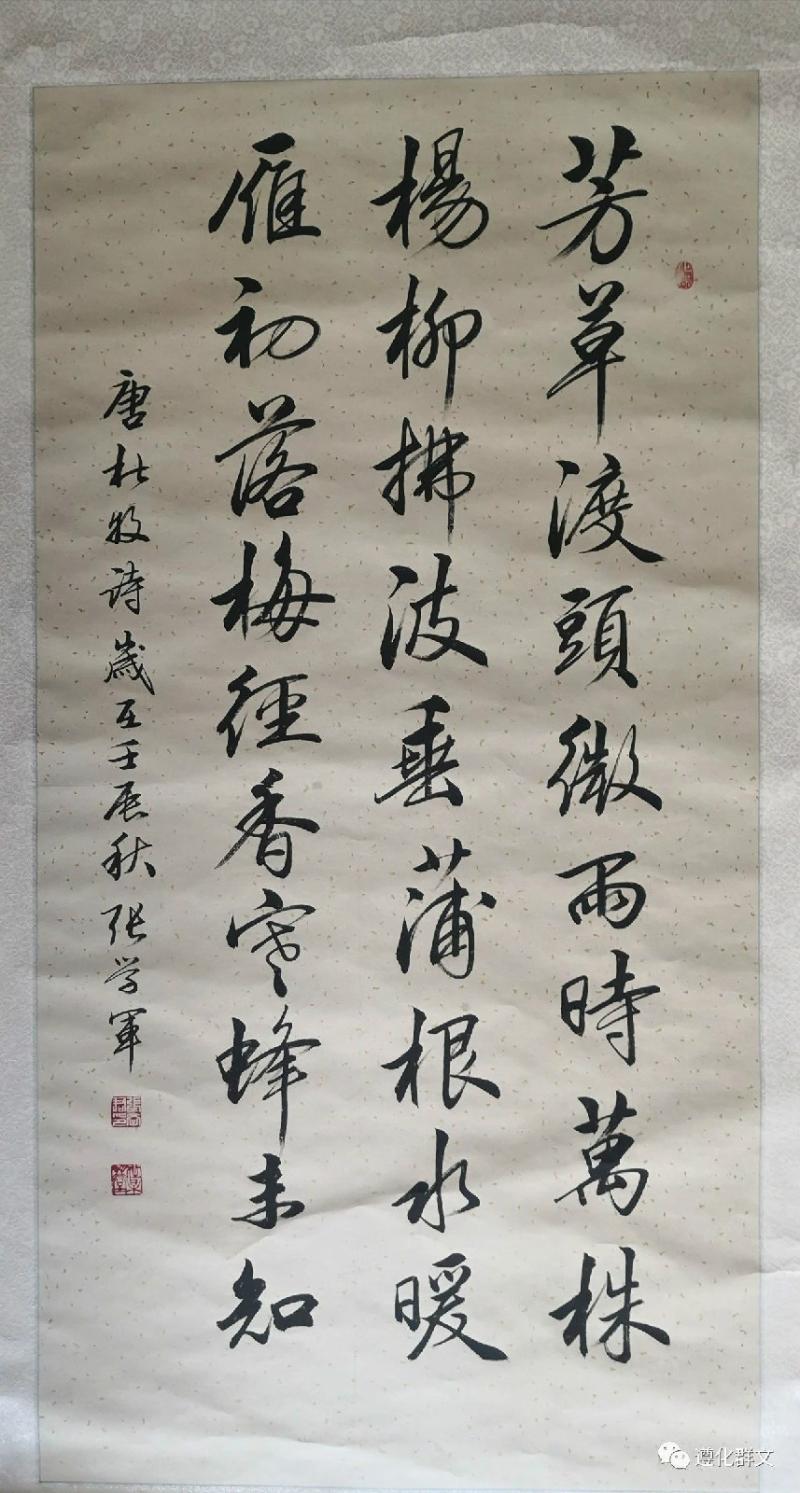 芳草渡頭微雨時萬株
楊柳拂波垂蒲根水暖
雁初落梅徑香寒蜂未知
唐杜牧詩歲在壬辰秋张学軍
遵化群文